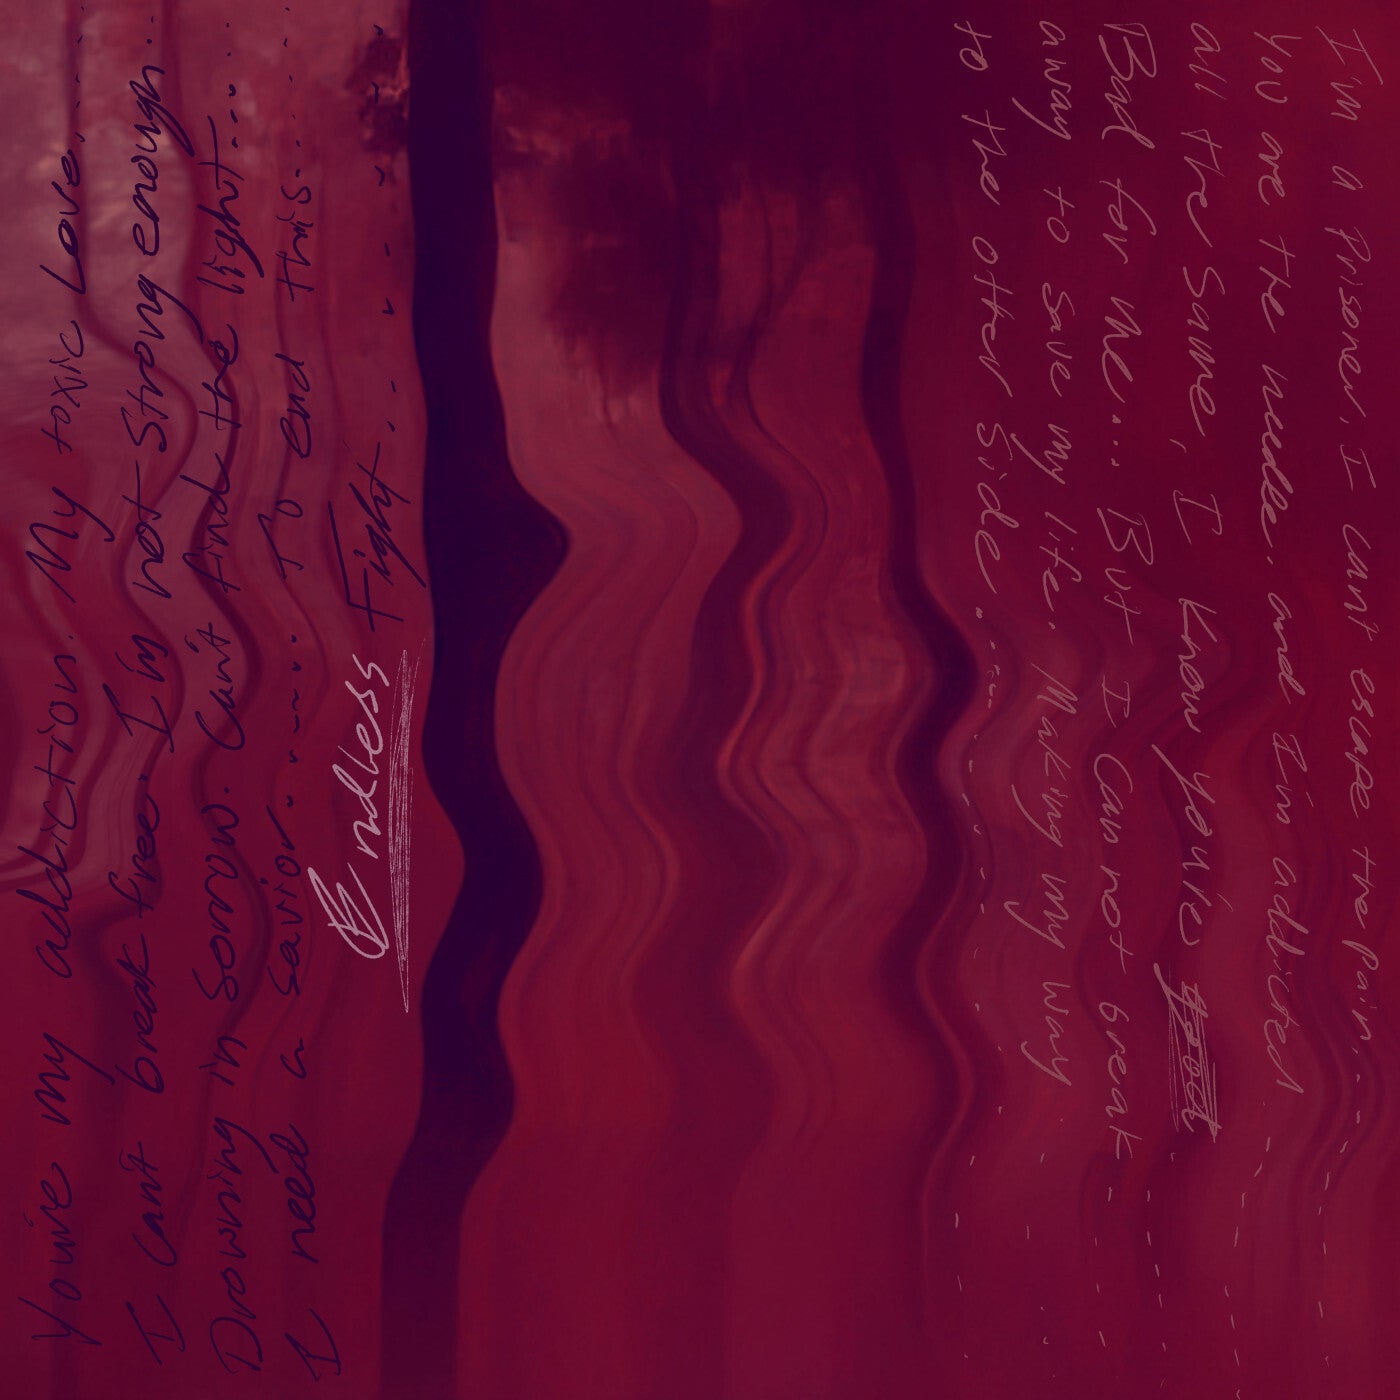 You're my addiction. My toxic Love.....
I can't break free. I'm not Strong enough...
Drowning in Sorrow. Can't find the light....
I need a savior....... To end this......
Endless Fight.......
I'm a prisoner, I can't escape the pain.
You are the needle. and I'm addicted
all the same, I know you're good
Bad for me... But I Can not break
away to save my life. Making my way
to the other side.....